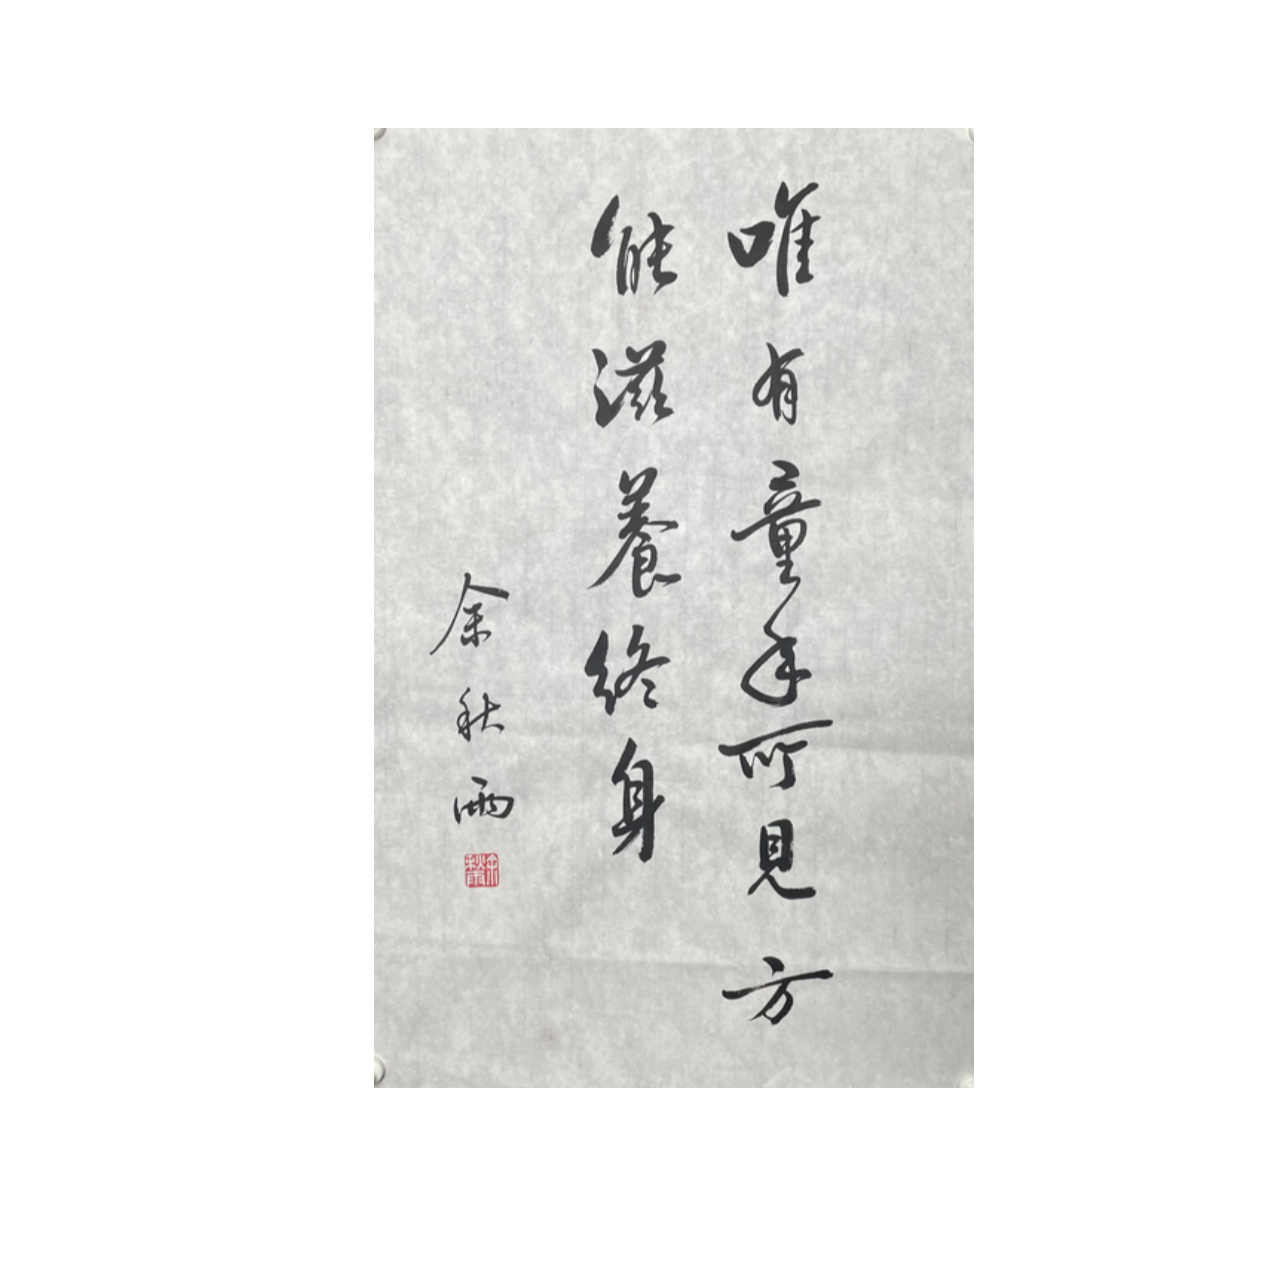 唯有童年所見方
能滋養終身
余秋雨